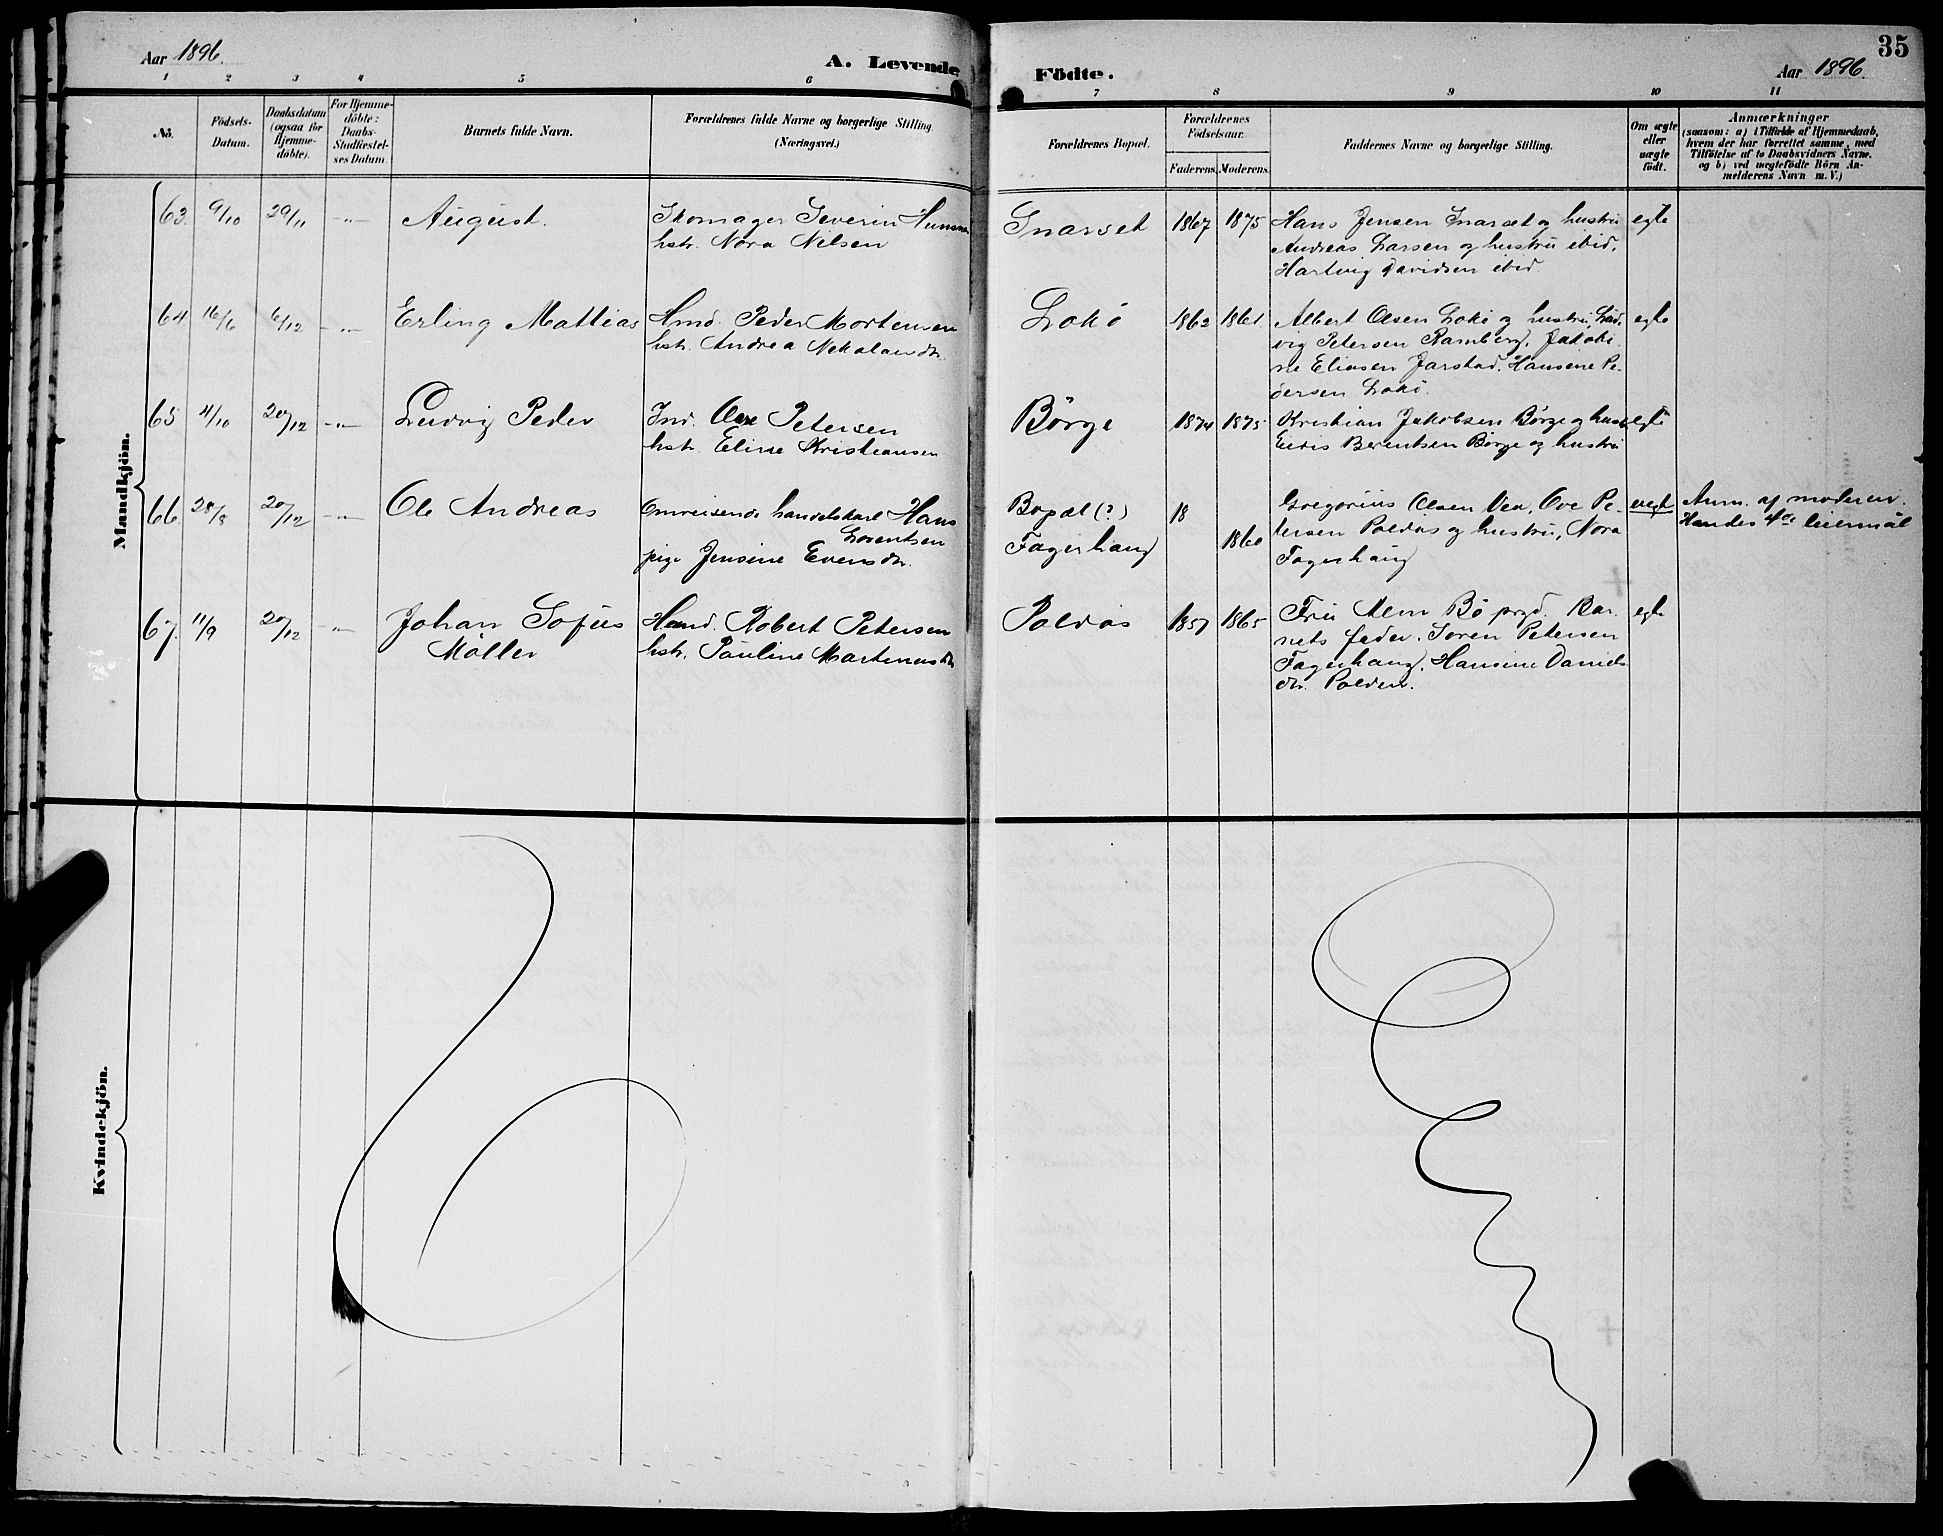 Aar 1896.
A. Levende
Födte.
Aar 1896.
35
1 2 3 4 5 6 7 8 9 10 11
No.
Födsels-
Datum.
Daabsdatum
(ogsaa for
Hjemme-
döbte).
For Hjemme-
döbte:
Daabs-
Stadfæstel-
ses Datum.
Barnets fulde Navn.
Forældrenes fulde Navne og borgerlige Stilling.
(Næringsvei.)
Forældrenes Bopæl.
Forældrenes
Födselsaar.
Faderens. Moderens.
Faddernes Navne og borgerlige Stilling.
Om ægte
eller
uægte
födt.
Anmærkninger
(saasom: a) i Tilfælde af Hjemmedaab,
hvem der har forrettet samme, med
Tilföielse af to Daabsvidners Navne.
og b) ved uægtefödte Börn An-
melderens Navn m. V.)
Mandkjön.
63. 9/10 29/11 -"- August. Skomager Severin
hstr. Nora Nilsen
Snarset 1867 1875 Hans Jensen Snarset og hustru egte
Andreas Larsen og hustru ibid.
Hartvig Davidsen ibid
64 16/6 6/12 -"- Erling Mattias Hmd. Peder Mortensen
hstr. Andrea
Lokö 1862 1861 Albert Olsen Lokö og hustru, Lud- egte
vig Petersen Ramberg, Jakobi-
ne Eliasen Jarstad, Hansine Pe-
dersen Lokö.
65 4/10 20/12 -"- Ludvig Peder Ind. Petersen
hstr. Eline Kristiansen
Börge 1874 1875 Kristian Jakobsen Börge og hustr egte
Berentsen Börge og hustru
66. 28/8 20/12 -"- Ole Andreas Omreisende handelskarl Hans
Lorentsen
pige Jensine Evensdr.
Bopæl (?) 18
Fagerhaug 1860
Gregorius Olsen Ove Pe-
tersen Poldas og hustru, Nora
Fagerhaug
uegte
Anm. af moderen.
Hendes 4de leiermål
67. 11/9 20/12 -"- Johan Sofus
Möller
Hmd. Robert Petersen
hstr. Pauline Martinusdr
Poldas 1857 1865 Fru Bö prgd. Bar- egte
nets fader. Sören Petersen
Fagerhaug. Hansine Daniels
dr. Polden.
Kvindekjön.